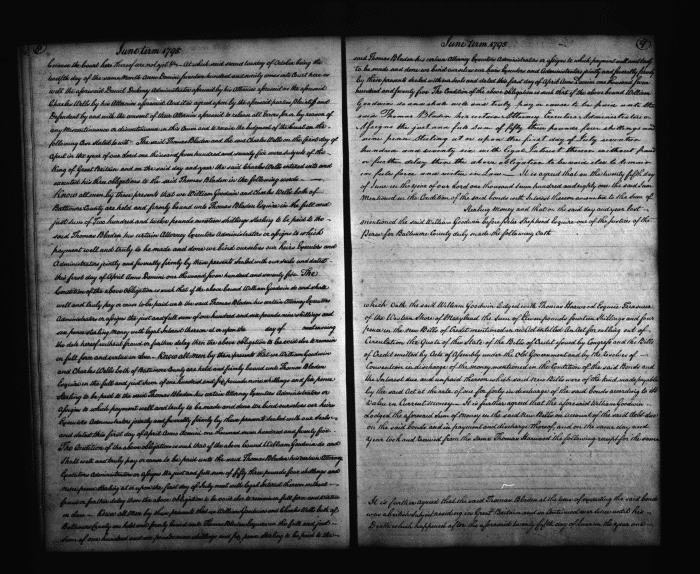 June term 1795
between the
At which said second tuesday of October being the
twelfth day of the same Month Anno Domini seventeen hundred and ninety comes into Court here as
well the aforesaid Daniel Dulany Administrator aforesaid by his Attornies aforesaid as the aforesaid
Charles Wells by his Attornies aforesaid And it is agreed upon by the aforesaid parties Plaintiff and
Defendant by and with the consent of their Attornies aforesaid to release all Errors for or by reason of
any Miscontinuance or discontinuance in this Cause and to receive the Judgment of the Court on the
following Case stated to wit. The said Thomas Bladen and the said Charles Wells on the first day of
April in the year of our Lord one thousand seven hundred and seventy five were subjects of the
King of Great Britain and on the said day and year the said Charles Wells executed
executed his three obligations to the said Thomas Bladen in the following words
Know all men by these presents that we William Goodwin and Charles Wells both of
Baltimore County are held and firmly bound unto Thomas Bladen Esquire in the full and
just sum of Two hundred and twelve pounds nineteen shillings sterling to be paid to the
said Thomas Bladen his certain Attorney Executors Administrators or assigns to which
payment well and truly to be made and done we bind ourselves our heirs Executors and
Administrators jointly and severally firmly by these presents sealed with our seals and dated
this first day of April Anno Domini one thousand seven hundred and seventy five. The
Condition of the above Obligation is such that if the above bound William Goodwin do and shall
well and truly pay or cause to be paid unto the said Thomas Bladen his certain Attorney Executors
Administrators or assigns the just and full sum of one hundred and six pounds nine shillings and
six pence sterling Money with legal Interest thereon at or upon the day of
the date hereof without fraud or further delay then the above obligation to be void else to remain
in full force and virtue in Law. Know all Men by these presents that we William Goodwin
and Charles Wells both of Baltimore County are held and firmly bound unto Thomas Bladen
Esquire in the full and just sum of one hundred and six pounds nine shillings and six pence
sterling to be paid to the said Thomas Bladen his certain Attorney Executors Administrators or
assigns to which payment well and truly to be made and done we bind ourselves our heirs
Executors Administrators jointly and severally firmly by these presents sealed with our seals
and dated this first day of April Anno Domini one thousand seven hundred and seventy five.
The Condition of the above obligation is such that if the above bound William Goodwin do and
shall well and truly pay or cause to be paid unto the said Thomas Bladen his certain Attorney
Executors Administrators or assigns the just and full sum of fifty three pounds four shillings and
nine pence sterling at or upon the first day of July next with legal Interest thereon without
fraud or further delay then the above obligation to be void else to remain in full force and virtue
in Law. Know all Men by these presents that we William Goodwin and Charles Wells both of
Baltimore County are held and firmly bound unto Thomas Bladen Esquire in the full and just
sum of one hundred and six pounds nine shillings and six pence sterling to be paid to the
June term 1795
said Thomas Bladen his certain Attorney Executors Administrators or assigns to which payment well and truly
to be made and done we bind ourselves our heirs Executors and Administrators jointly and severally firmly
by these presents sealed with our seals and dated this first day of April Anno Domini one thousand seven
hundred and seventy five The Condition of the above Obligation is such that if the above bound William
Goodwin do and shall well and truly pay or cause to be paid unto the
said Thomas Bladen his certain Attorney Executors Administrators or
Assigns the just and full sum of fifty three pounds four shillings and
nine pence sterling at or upon the first day of July seventeen
hundred and seventy six with legal Interest thereon without fraud
or further delay then the above Obligation to be void else to remain
in full force and virtue in Law. It is agreed that on the twenty fifth day
of June in the year of our Lord one thousand seven hundred and eighty one the said sum
mentioned in the Condition of the said bonds with Interest thereon amounted to the sum of
Sterling Money and that on the said day and year last
mentioned the said William Goodwin before Price Shepherd Esquire one of the justices of the
Peace for Baltimore County duly made the following oath
which Oath the said William Goodwin Lodged with Thomas Harwood Esquire Treasurer
of the Western Shore of Maryland the Sum of pounds fourteen Shillings and four
pence in the new Bills of Credit mentioned in an Act entitled An Act for calling out of
Circulation the Quota of this State of the Bills of Credit issued by Congress and the Bills
of Credit emitted by Acts of Assembly under the Old Government and by the resolves of
Convention in discharge of the money mentioned in the Condition of the said Bonds and
the Interest due and unpaid thereon which said new Bills were of the kind made payable
by the said Act at the rate of one for forty in discharge of the said bonds according to its
value in Current Money. It is further agreed that the aforesaid William Goodwin
Lodged the aforesaid sum of Money in the said New Bills on Account of the said
on the said Bonds and in payment and discharge thereof, and on the same day and
Year took and received from the same Thomas Harwood the following receipt for the same
It is further agreed that the said Thomas Bladen at the time of executing the said bonds
was a british subject residing in Great Britain and so continued ever since until his
Death which happened after the aforesaid twenty fifth day of June in the year one